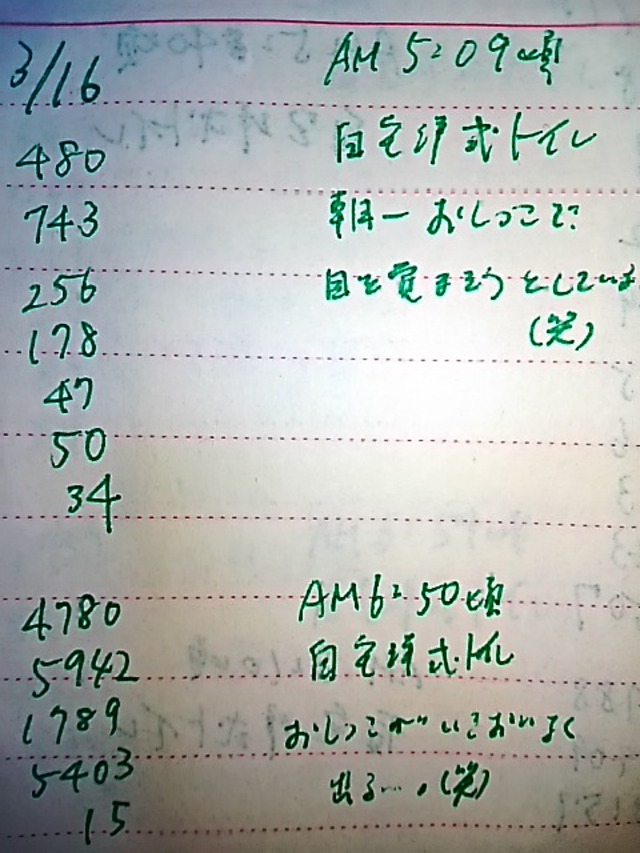 3/16 AM 5:09頃
480 自宅洋式トイレ
743 朝一おしっこで
256 目を覚まそうとしている
178 (笑)
47
50
34
4780 AM6:50頃
5942 自宅洋式トイレ
1789 おしっこがいきおいよく
5403 出る…。(笑)
15